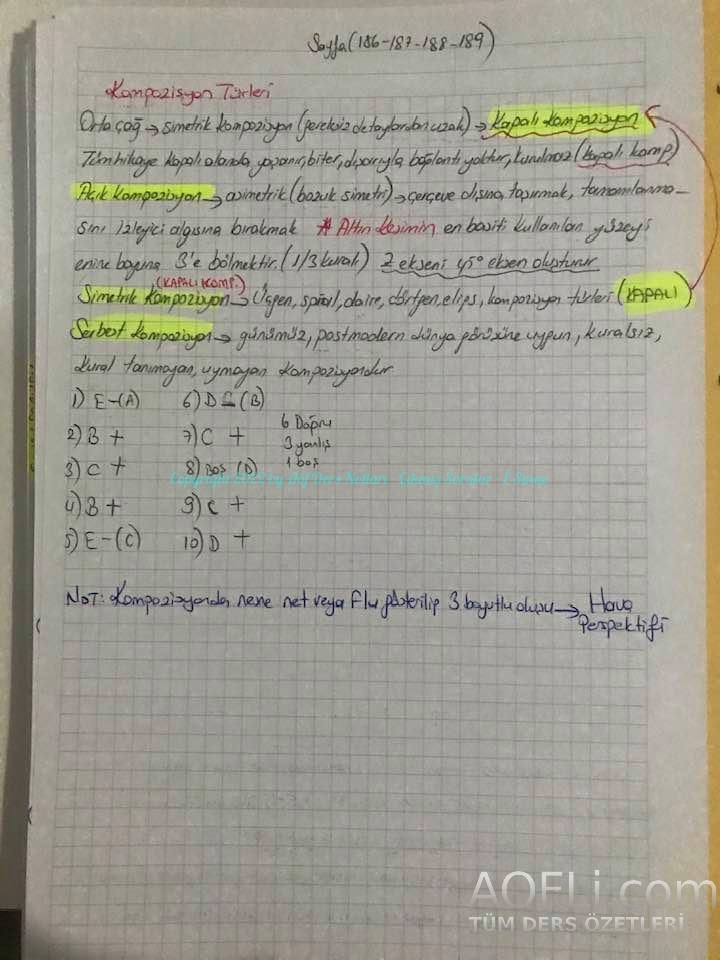 Sayfa (186-187-188-189)
Kompozisyon Türleri
Orta çağ → simetrik kompozisyon (gereksiz detaylardan uzak) → Kapalı Kompozisyon
Tüm hikaye kapalı alanda yaşanır, biter, dışarıyla bağlantı yoktur, kurulmaz (kapalı komp)
Açık kompozisyon → asimetrik (bozuk simetri) → çerçeve dışına taşırmak, tamamlanma-
sını izleyici algısına bırakmak * Altın kesimin en basiti kullanılan yüzeyi
enine boyuna 3'e bölmektir. (1/3 kuralı) Z ekseni 45° eksen oluşturur
(KAPALI KOMP.)
Simetrik kompozisyon → Üçgen, spiral, daire, dörtgen, elips, kompozisyon türleri (KAPALI)
Serbest kompozisyon → günümüz, postmodern dünya görüşüne uygun, kuralsız,
kural tanımayan, uymayan kompozisyondur
1) E-(A) 6) D (B)
2) B + 7) C +
3) C + 8) Boş (D)
4) B + 9) C +
5) E-(C) 10) D +
6 Doğru
3 yanlış
1 boş
NOT: Kompozisyonda nesne net veya flu gösterilip 3 boyutlu oluşu → Hava
Perspektifi
AOFLi.com
TÜM DERS ÖZETLERİ